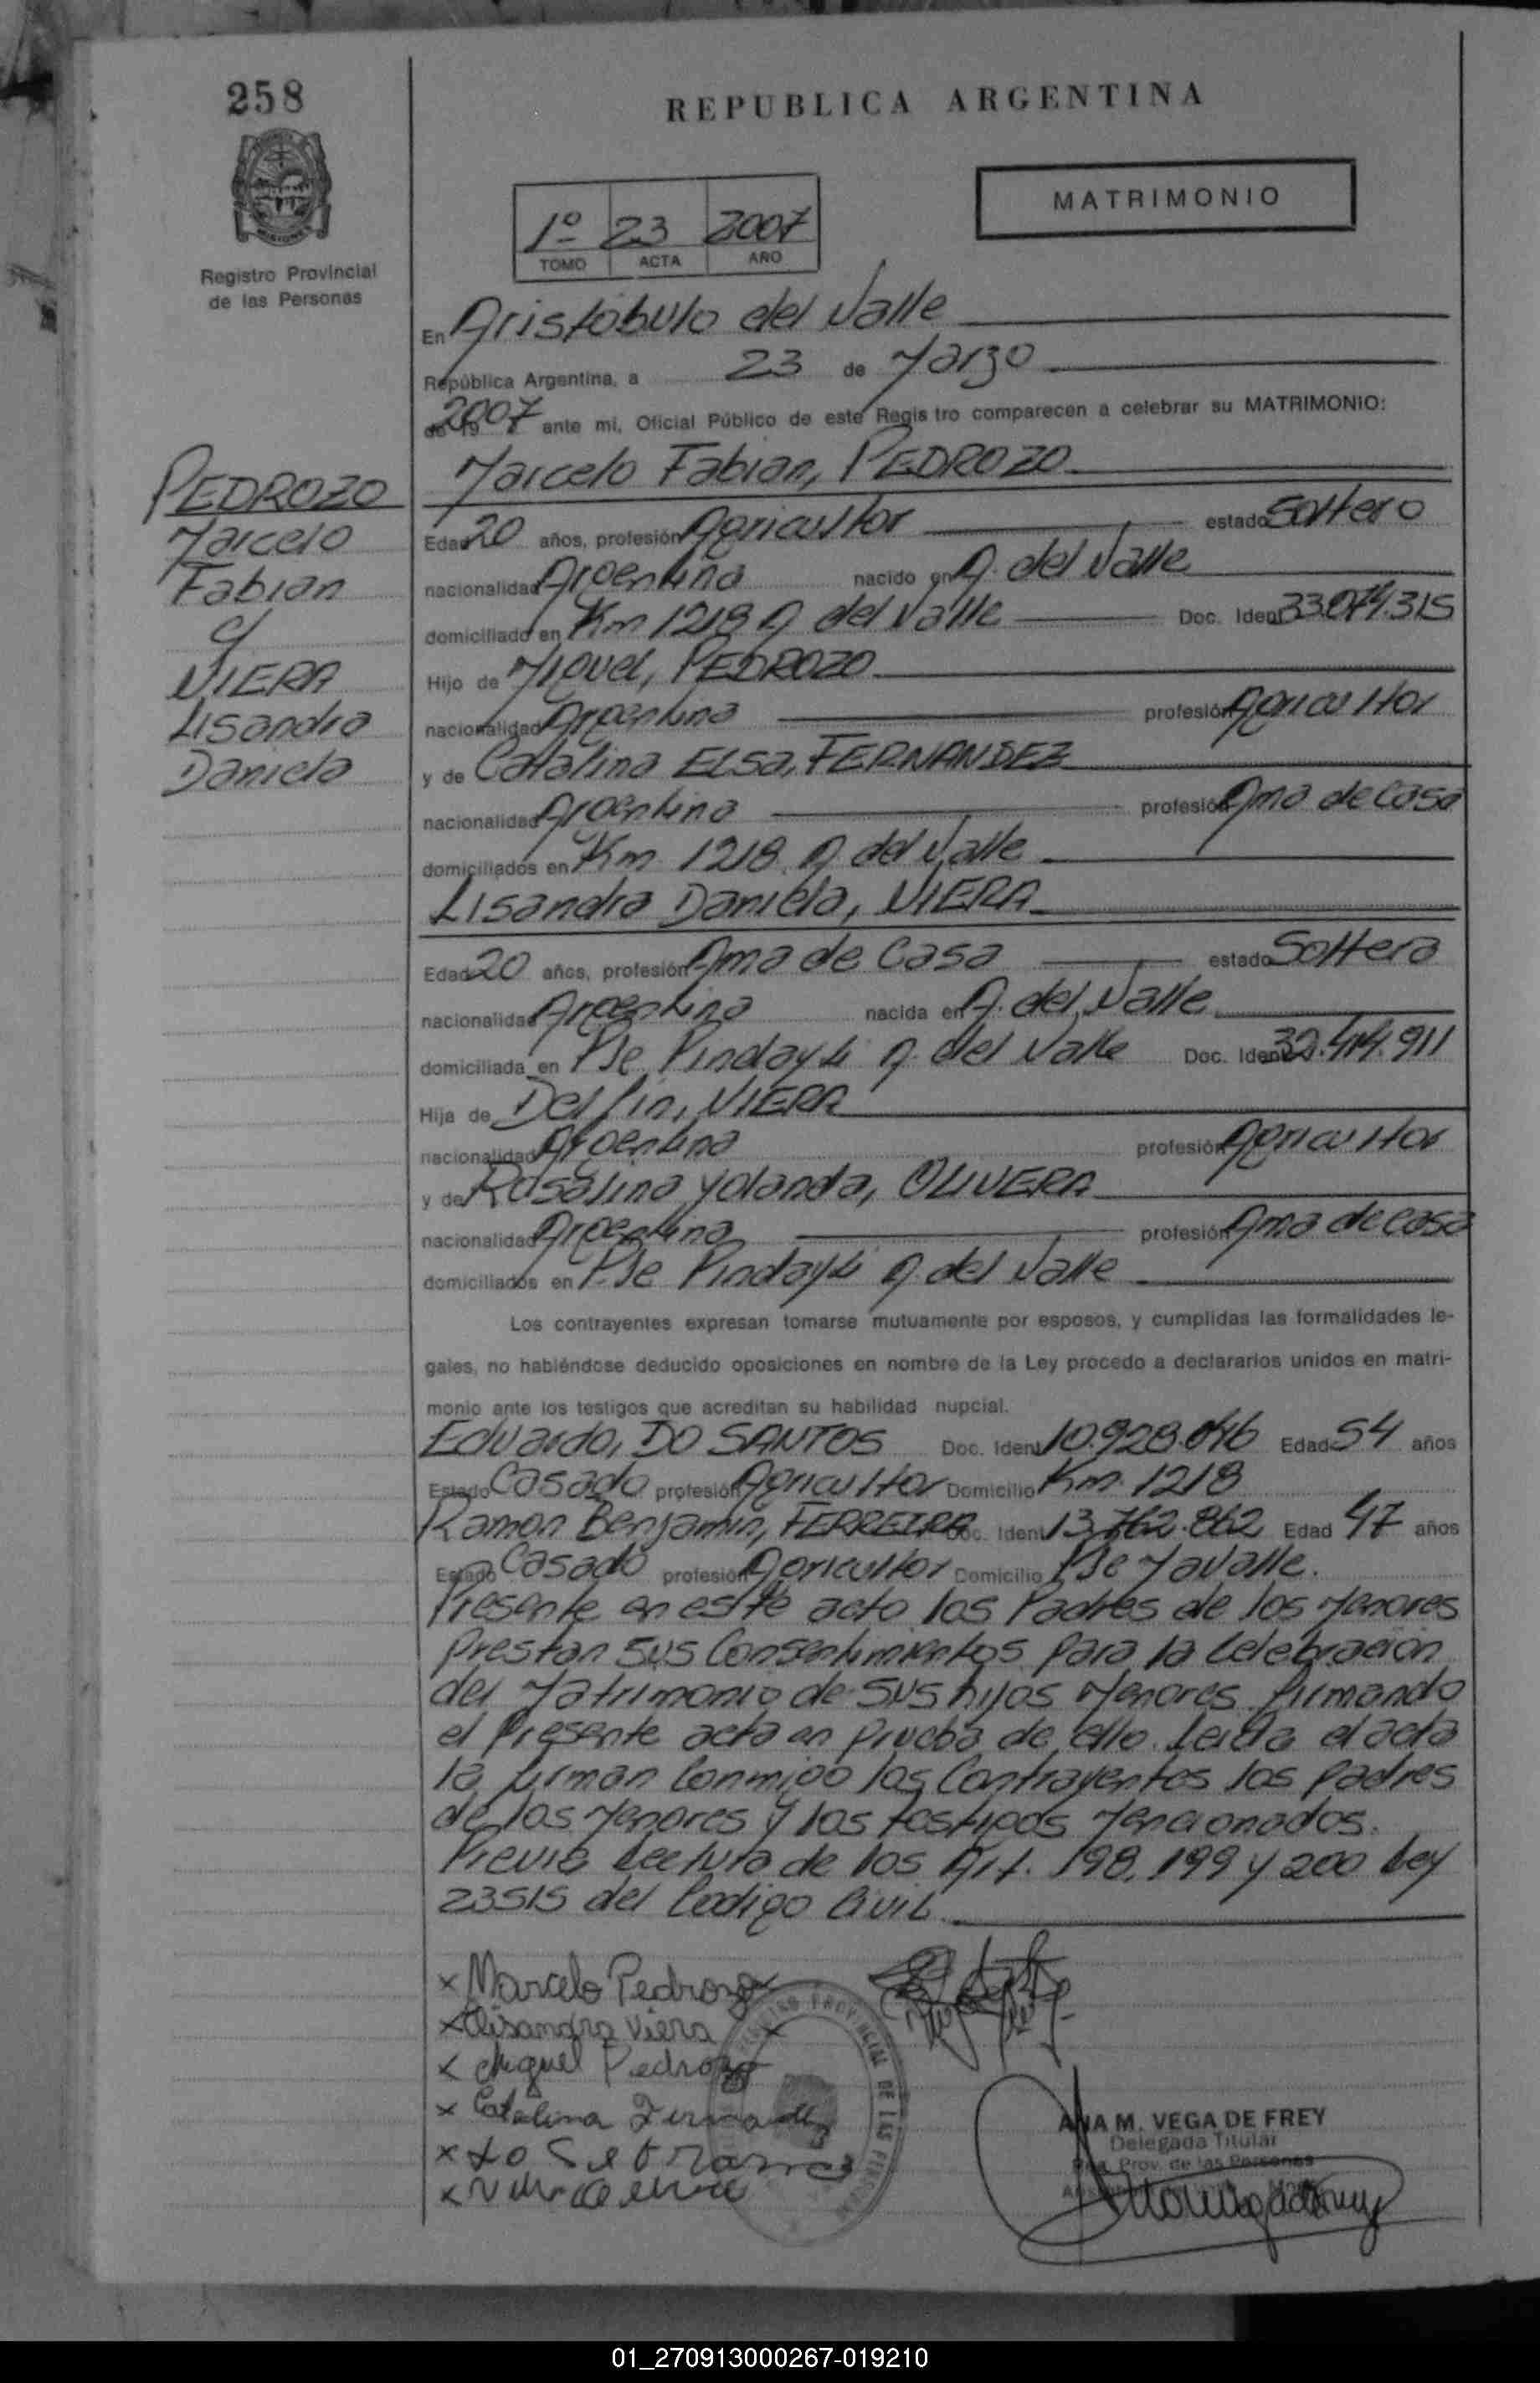 258
REPUBLICA ARGENTINA
MATRIMONIO
1º 23 2007
TOMO ACTA AÑO
MISIONES
Registro Provincial
de las Personas
En Aristóbulo del Valle
República Argentina, a 23 de Marzo
de 19 2007 ante mi, Oficial Público de este Registro comparecen a celebrar su MATRIMONIO:
Marcelo Fabian, PEDROZO
PEDROZO
Marcelo
Fabian
c/
VIERA
Lisandra
Daniela
Edad 20 años, profesión Agricultor estado Soltero
nacionalidad Argentina nacido en A. del Valle
domiciliado en Km 1218 A del Valle Doc. Ident 33.074.315
Hijo de Miguel, PEDROZO
nacionalidad Argentina profesión Agricultor
y de Catalina ELSA, FERNANDEZ
nacionalidad Argentina profesión Ama de Casa
domiciliados en Km 1218. A del Valle
Lisandra Daniela, VIERA
Edad 20 años, profesión Ama de Casa estado Soltera
nacionalidad Argentina nacida en A. del Valle
domiciliada en Pje Pindayti A. del Valle Doc. Ident 32.414.911
Hija de Delfin, VIERA
nacionalidad Argentina profesión Agricultor
y de Rosalina Yolanda, OLIVERA
nacionalidad Argentina profesión Ama de casa
domiciliados en Pje Pindayti A. del Valle
Los contrayentes expresan tomarse mutuamente por esposos, y cumplidas las formalidades le-
gales, no habiéndose deducido oposiciones en nombre de la Ley procedo a declararlos unidos en matri-
monio ante los testigos que acreditan su habilidad nupcial.
Eduardo, DO SANTOS Doc. Ident 10.928.046 Edad 54 años
Estado Casado profesión Agricultor Domicilio Km. 1218
Ramon Benjamin, FERREIRA Doc. Ident 13.762.862 Edad 47 años
Estado Casado profesión Agricultor Domicilio Pje Mavalle.
Presente en este acto los Padres de los Menores
prestan sus Consentimientos para la Celebración
del Matrimonio de sus hijos Menores firmando
el Presente acta en prueba de ello. Leida el acta
la firman Conmigo los Contrayentes los padres
de los Menores y los testigos Mencionados.
Previa Lectura de los Art. 198, 199 y 200 Ley
23515 del Codigo Civil.
x Marcelo Pedrozo
x Lisandra Viera
x Miguel Pedrozo
x Catalina Fernandez
REGISTRO PROVINCIAL DE LAS PERSONAS
ANA M. VEGA DE FREY
Delegada Titular
Reg. Prov. de las Personas
01_270913000267-019210